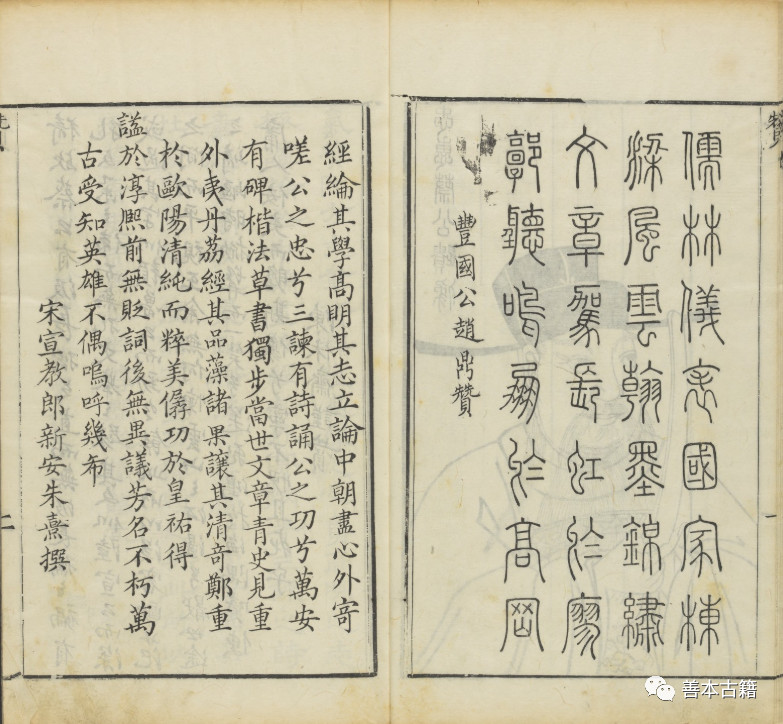 儒林儀表國家棟
梁風雲翰墨錦繡
文章駕長虹於寥
郭聽鳴鳳於高岡
豐國公趙鼎贊
經綸其學髙明其志立論中朝盡心外寄
嗟公之忠兮三諫有詩誦公之功兮萬安
有碑楷法草書獨步當世文章青史見重
外夷丹荔經其品藻諸果讓其清奇鄭重
於歐陽清純而粹美僝功於皇祐得
諡於淳熙前無貶詞後無異議芳名不朽萬
古受知英雄不偶嗚呼幾布
宋宣教郎新安朱熹撰
二
善本古籍